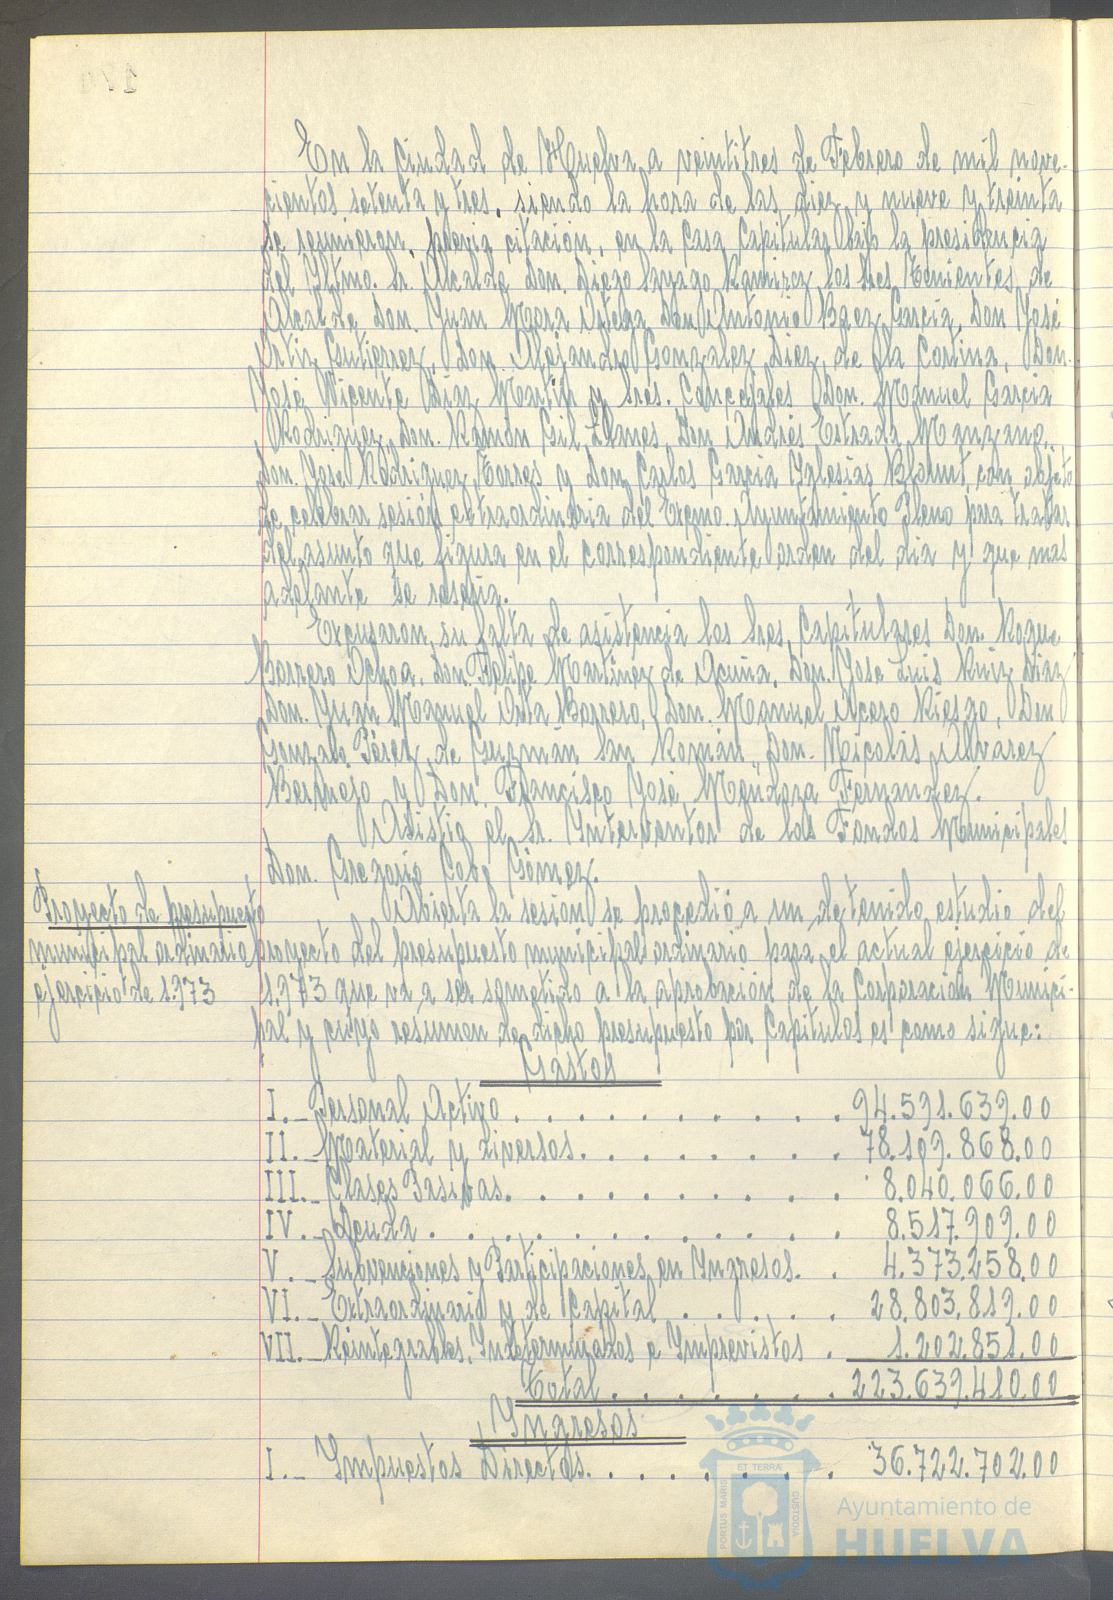 En la Ciudad de Huelva a veintitres de Febrero de mil nove-
cientos setenta y tres, siendo la hora de las diez y nueve y treinta
se reunieron, previa citación, en la Casa Capitular bajo la presidencia
del Iltmo. Sr. Alcalde Don Diego Sayago Ramirez los Sres. Tenientes de
Alcalde Don Juan Mora Ortega Don Antonio Baez Garcia, Don José
Ortiz Gutierrez, Don Alejandro Gonzalez Diez de la Cortina, Don
José Vicente Diaz Martin y Sres. Concejales Don Manuel Garcia
Rodriguez, Don Ramón Gil Llanes, Don Andrés Estrada Manzano,
Don José Rodriguez Torres y Don Carlos Garcia Yglesias Blount con objeto
de celebrar sesión extraordinaria del Excmo. Ayuntamiento Pleno para tratar
del asunto que figura en el correspondiente orden del dia y que mas
adelante se reseña.
Excusaron su falta de asistencia los Sres. Capitulares Don Roque
Barrero Ochoa, Don Felipe Martinez de Acuña, Don José Luis Ruiz Diaz
Don Juan Manuel Orta Borrero, Don Manuel Acero Riesgo, Don
Gonzalo Pérez de Guzmán San Román, Don Nicolás Alvárez
Bermejo y Don Francisco José Mendoza Fernandez.
Asistió el Sr. Interventor de los Fondos Municipales
Don Gregorio Cobo Gómez.
Proyecto de presupuesto
municipal ordinario
ejercicio de 1.973
Abierta la sesión se procedió a un detenido estudio del
proyecto del presupuesto municipal ordinario para el actual ejercicio de
1.973 que va a ser sometido a la aprobación de la Corporación Munici-
pal y cuyo resumen de dicho presupuesto por Capitulos es como sigue:
Gastos
I._ Personal Activo . . . . . . . . . . 94.591.639.00
II._ Material y diversos. . . . . . . . 78.109.868.00
III._ Clases Pasivas. . . . . . . . . . 8.040.066.00
IV._ Deuda . . . . . . . . . . . . . 8.517.909.00
V._ Subvenciones y Participaciones en Ingresos. . 4.373.258.00
VI._ Extraordinario y de Capital . . . . . 28.803.819.00
VII._ Reintegrables, Indeterminados e Imprevistos . 1.202.851.00
Total . . . . . . . . 223.639.410.00
Ingresos
I._ Impuestos Directos. . . . . . . . 36.722.702.00
ET TERRÆ
PORTUS MARIS
CUSTODIA
Ayuntamiento de
HUELVA